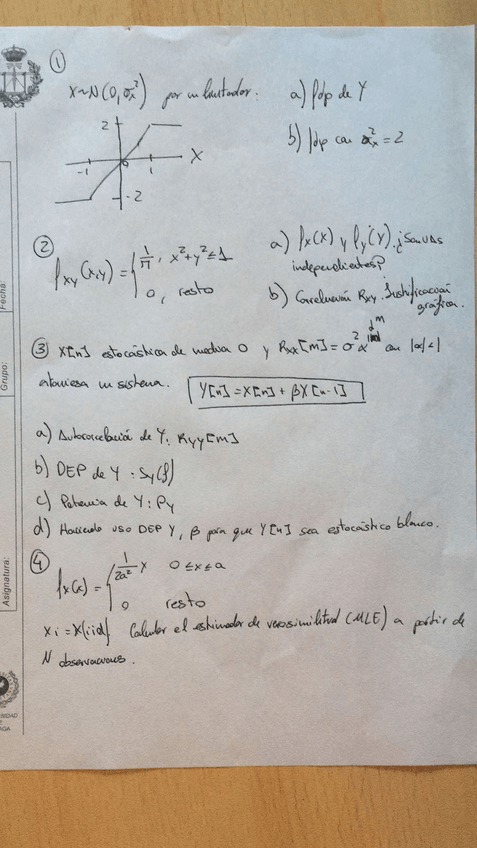 ①
X~N(0,σx²) por un limitador. a) fdp de Y
2
-1 0 1 X
-2
b) fdp con σx²=2
②
fxy(x,y) = { 1/π, x²+y²≤1
0, resto
a) fx(x) y fy(y). ¿Son VAs
independientes?
b) Correlación Rxy. Justificación
gráfica.
③ X[n] estocástica de media 0 y Rxx[m]=σ²α^|m| con |α|<1
atraviesa un sistema. Y[n]=X[n]+βX[n-1]
a) Autocorrelación de Y: Ryy[m]
b) DEP de Y: Sy(f)
c) Potencia de Y: Py
d) Haciendo uso DEP Y, β para que Y[n] sea estocástico blanco.
④
fx(x) = { 1/2a² x 0≤x≤a
0 resto
xi = X(iid) Calcular el estimador de verosimilitud (MLE) a partir de
N observaciones.
Fecha:
Grupo:
Asignatura: